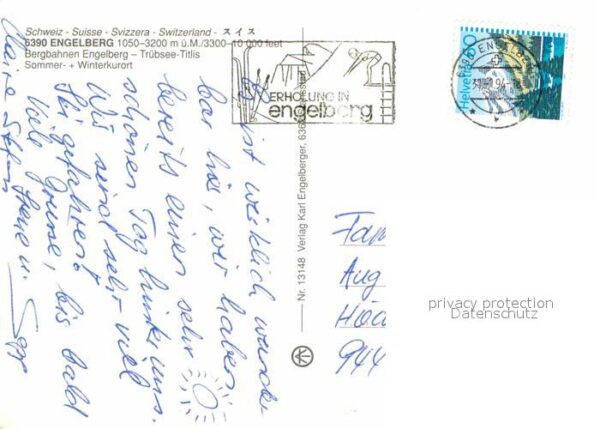 Schweiz - Suisse - Svizzera - Switzerland - スイス
6390 ENGELBERG 1050–3200 m ü.M./3300–10 000 feet
Bergbahnen Engelberg – Trübsee-Titlis
Sommer- + Winterkurort
ERHOLUNG IN
engelberg
6390 ENGELBERG
Helvetia 80
Nr. 13148 Verlag Karl Engelberger, 6390
Es ist wirklich wunder
bar hier, wir haben
bereits einen sehr
schönen Tag hinter uns.
Wir sind sehr viel
Ski gefahren!
Viele Grüsse, bis bald
Stefan, Irene u. Sepp
Fam
Aug
944
privacy protection
Datenschutz